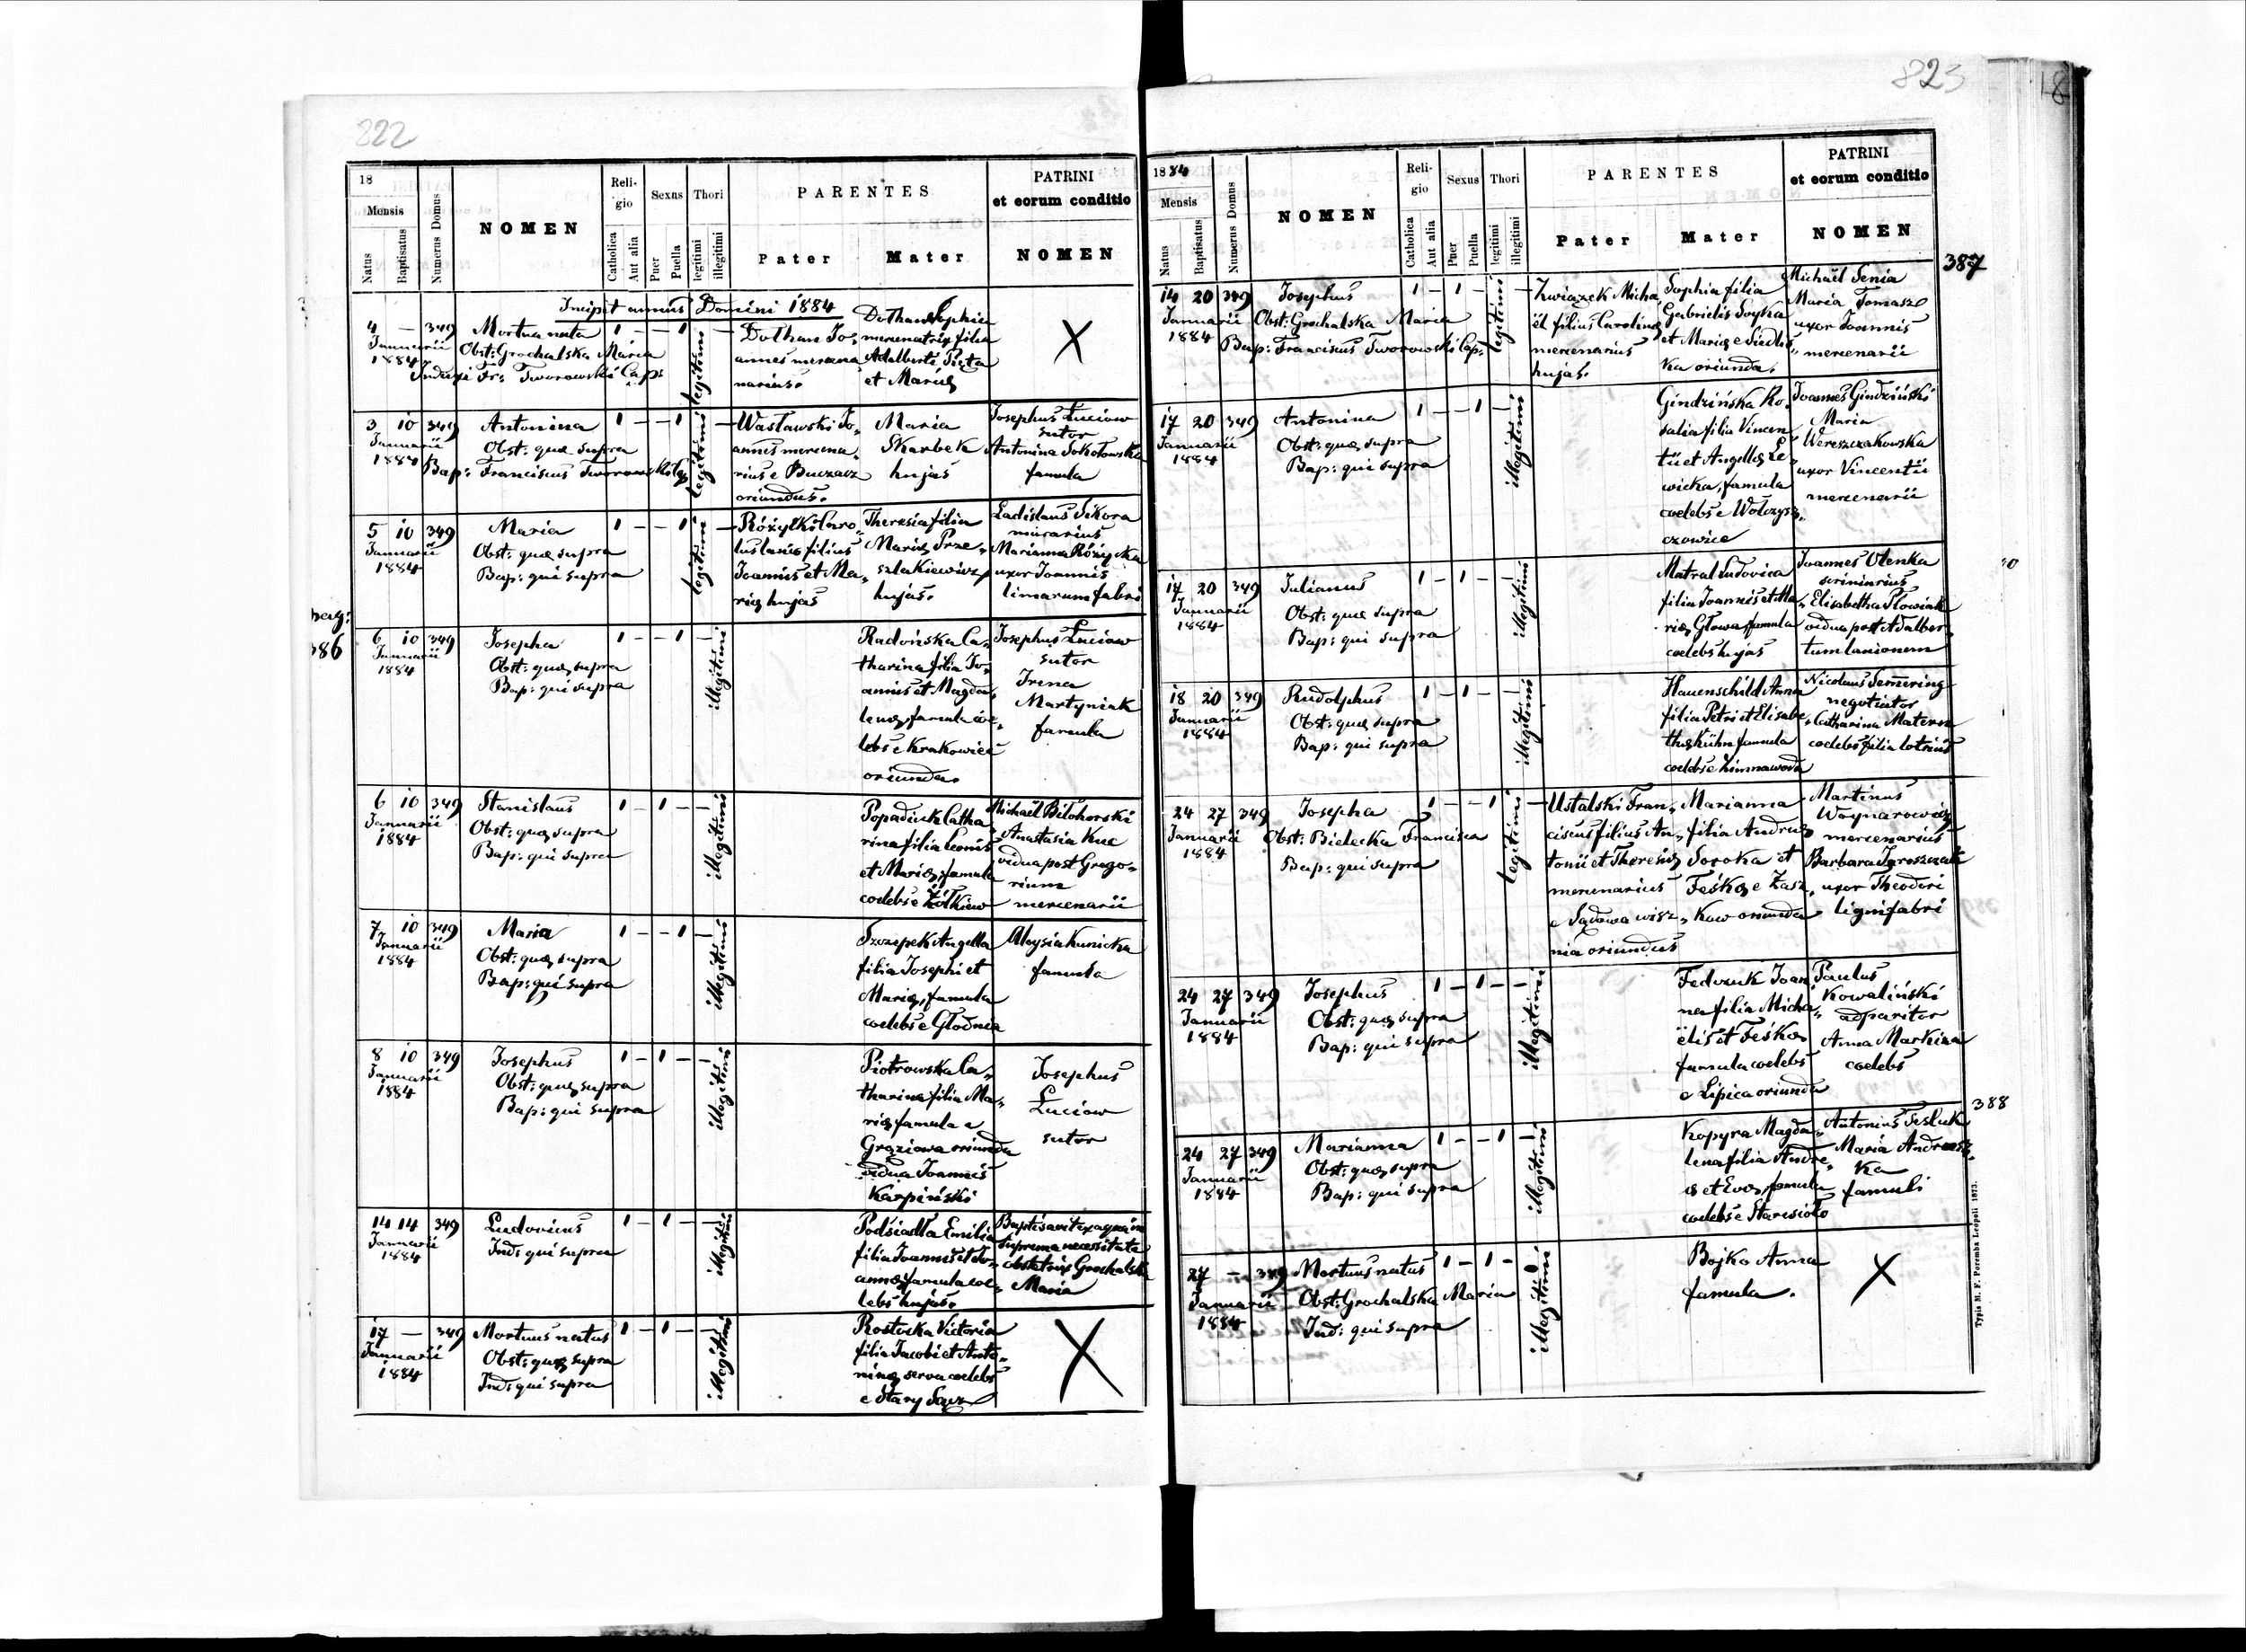 822
18
Mensis
Natus
Baptisatus
Numerus Domus
NOMEN
Reli-
gio
Catholica
Aut alia
Sexus
Puer
Puella
Thori
legitimi
illegitimi
PARENTES
Pater
Mater
PATRINI
et eorum conditio
NOMEN
Incipit annus Domini 1884
4 — 349 Mortua nata 1 — — 1
Januarii
1884
Obst: Grochalska Maria
Fr: Tworowski Cap:
legitimi
Dothan Jo„
annes mercena„
narius.
Dothan Sophia
mercenatrix filia
Adalberti Pięta
et Mariæ
X
3 10 349 Antonina 1 — — 1
Januarii
1884
Obst: quæ supra
Bap: Franciscus Tworowski Cap
legitimi
Wasławski Jo„
annes mercena„
rius e Buczacz
oriundus.
Maria
Skarbek
hujas
Josephus Łuciow
sutor
Antonina Sokołowska
famula
5 10 349 Maria 1 — — 1
Januarii
1884
Obst: quæ supra
Bap: qui supra
legitimi
Różycki Caro„
lus lanio filius
Joannis et Ma„
riæ hujas
Theresia filia
Mariæ Prze„
szlakiewicz
hujas.
Ladislaus Sikora
murarius
Marianna Różycka
uxor Joannis
limarum fabri
pag:
386
6 10 349 Josepha 1 — — 1 —
Januarii
1884
Obst: quæ supra
Bap: qui supra
illegitimi
Radońska Ca„
tharina filia Jo„
annis et Magda„
lenæ, famula cœ„
lebs e Krakowiec
oriunda.
Josephus Łuciow
sutor
Irena
Martyniak
famula
6 10 349 Stanislaus 1 — 1 — —
Januarii
1884
Obst: quæ supra
Bap: qui supra
illegitimi
Popadiuk Catha
rina filia Leonis
et Mariæ, famula
coelebs e Żółkiew
Michaël Biłohorski
Anastasia Kuc
vidua post Grego„
rium
mercenarii
7 10 349 Maria 1 — — 1 —
Januarii
1884
Obst: quæ supra
Bap: qui supra
illegitimi
Szczepek Angella
filia Josephi et
Mariæ, famula
coelebs e Głodnia
Aloysia Kunicka
famula
8 10 349 Josephus 1 — 1 — —
Januarii
1884
Obst: quæ supra
Bap: qui supra
illegitimi
Piotrowska Ca„
tharina filia Ma„
riæ famula e
Graziowa oriunda
vidua Joannis
Karpiński
Josephus
Łuciow
sutor
14 14 349 Ludovicus 1 — 1 — —
Januarii
1884
Ind: qui supra
illegitimi
Podsiadła Emilia
filia Joannis et Jo„
annæ famula coe„
lebs hujas.
Baptisavit ex aqua in
suprema necessitate
obstetrix Grochalska
Maria
17 — 349 Mortuus natus 1 — 1 — —
Januarii
1884
Obst: quæ supra
Ind: qui supra
illegitimi
Rostecka Victoria
filia Jacobi et Anto„
ninæ serva coelebs
e Stary Sącz
X
823
18
1884
Mensis
Natus
Baptisatus
Numerus Domus
NOMEN
Reli-
gio
Catholica
Aut alia
Sexus
Puer
Puella
Thori
legitimi
illegitimi
PARENTES
Pater
Mater
PATRINI
et eorum conditio
NOMEN
387
14 20 349 Josephus 1 — 1 — —
Januarii
1884
Obst: Grochalska Maria
Bap: Franciscus Tworowski Cap:
legitimi
Zwiazek Micha„
ël filius Carolinæ
mercenarius
hujas.
Sophia filia
Gabrielis Soyka
et Mariæ e Siedlis„
ka oriunda.
Michaël Senia
Maria Tomasz
uxor Joannis
mercenarii
17 20 349 Antonina 1 — — 1 —
Januarii
1884
Obst: quæ supra
Bap: qui supra
illegitimi
Gindzińska Ro„
salia filia Vincen„
tii et Angellæ Le„
wicka, famula
coelebs e Wołczysz„
czowice
Joannes Gindziński
Maria
Wereszczakowska
uxor Vincentii
mercenarii
17 20 349 Julianus 1 — 1 — —
Januarii
1884
Obst: quæ supra
Bap: qui supra
illegitimi
Matral Ludovica
filia Joannis et Ma„
riæ Głowa, famula
coelebs hujas
Joannes Olenka
scriniarius
Elisabetha Słowiak
vidua post Adalber„
tum lanionem
18 20 349 Rudolphus 1 — 1 — —
Januarii
1884
Obst: quæ supra
Bap: qui supra
illegitimi
Hauenschild Anna
filia Petri et Elisabe„
thæ Kühn famula
coelebs e Zimnawoda
Nicolaus Semering
negotiator
Catharina Matern
coelebs filia lotricis
24 27 349 Josepha 1 — — 1 —
Januarii
1884
Obst: Bielecka Francisca
Bap: qui supra
legitimi
Ustalski Fran„
ciscus filius An„
tonii et Theresiæ
mercenarius
e Sądowa wisz„
nia oriundus
Marianna
filia Andreæ
Soroka et
Feśkæ e Zasz„
kow oriunda
Martinus
Woynarowicz
mercenarius
Barbara Jaroszczak
uxor Theodori
lignifabri
24 27 349 Josephus 1 — 1 — —
Januarii
1884
Obst: quæ supra
Bap: qui supra
illegitimi
Fedczuk Joan„
na filia Micha„
ëlis et Feśkæ
famula coelebs
e Lipica oriunda
Paulus
Kowaliński
adparitor
Anna Markina
coelebs
388
24 27 349 Marianna 1 — — 1 —
Januarii
1884
Obst: quæ supra
Bap: qui supra
illegitimi
Kopyra Magda„
lena filia Andre„
æ et Evæ, famula
coelebs e Staresioło
Antonius Tesluk
Maria Andrusz„
ka
famuli
27 — 349 Mortuus natus 1 — 1 —
Januarii
1884
Obst: Grochalska Maria
Ind: qui supra
illegitimi
Bojko Anna
famula.
X
Typis M. F. Poremba Leopoli 1873.